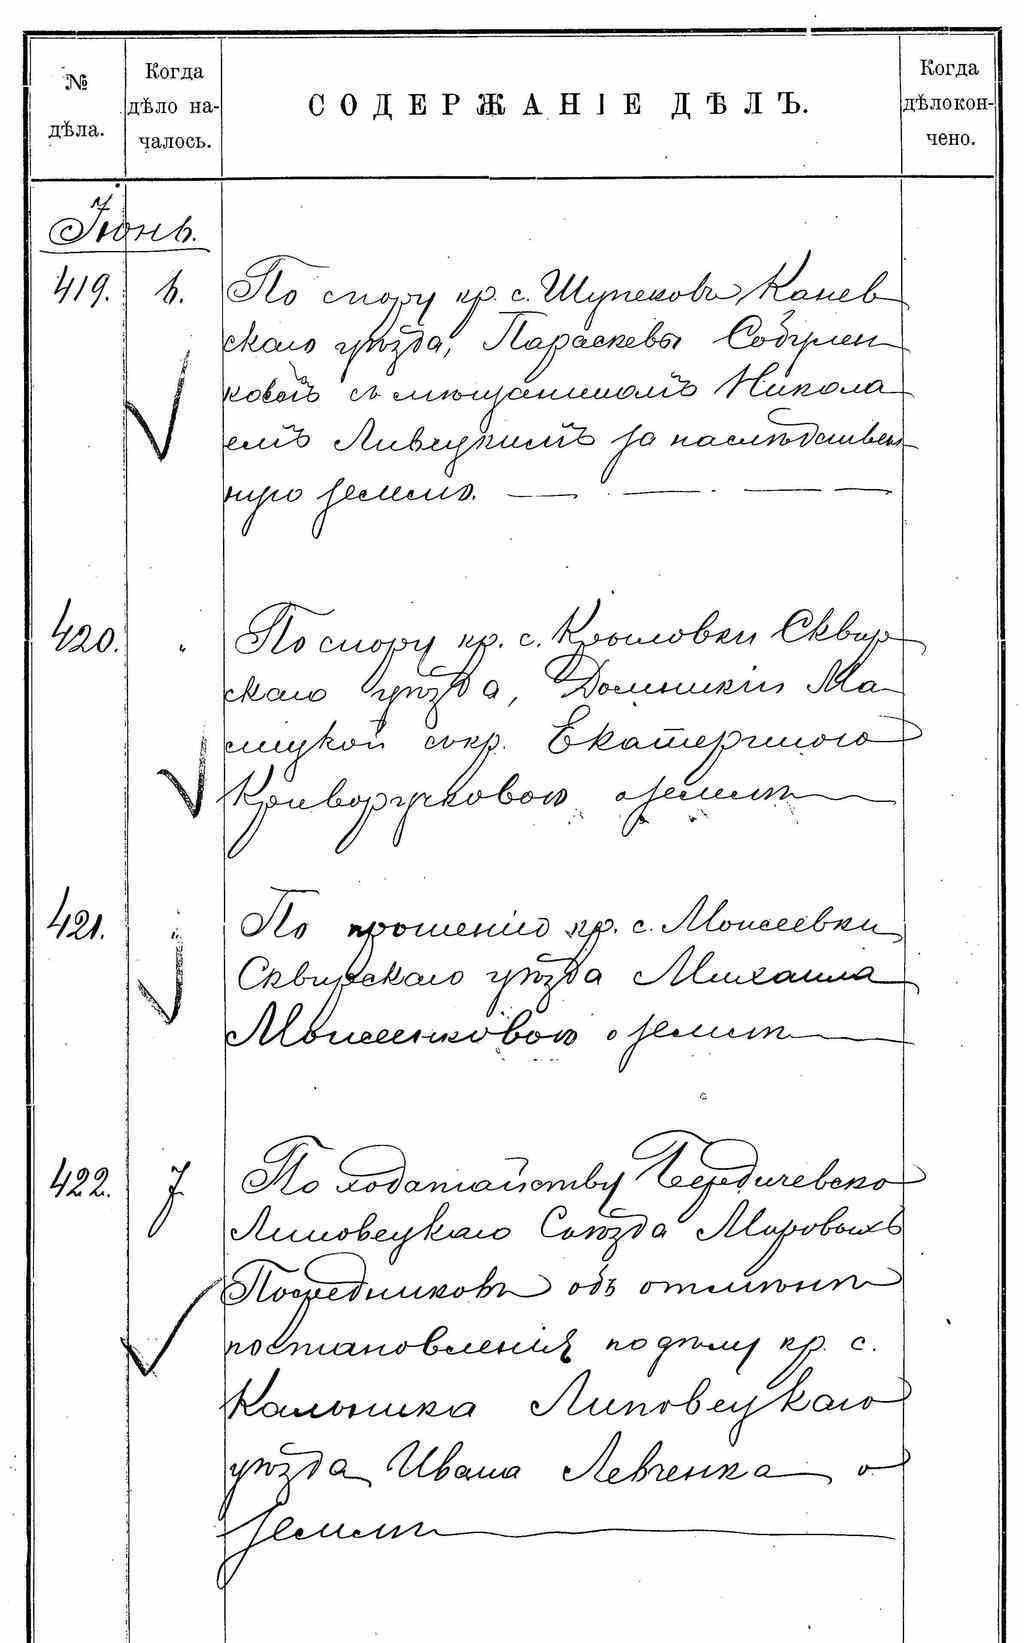 № дѣла.
Когда дѣло на-
чалось.
СОДЕРЖАНІЕ ДѢЛЪ.
Когда
дѣло кон-
чено.
Іюнь.
419. 6. По спору кр. с. Шупековъ Канев
скаго уѣзда, Параскевы Собулен
ковой съ мѣщаниномъ Никола
емъ Ливецкимъ за наслѣдствен
ную землю.
420. " По спору кр. с. Крыловки Сквир
скаго уѣзда, Домникіи Ма
лицкой съ кр. Екатериною
Криворучковою о землѣ
421. " По прошенію кр. с. Моисеевки
Сквирскаго уѣзда Михаила
Моисеенковою о землѣ
422. 7. По ходатайству Бердичевско
Липовецкаго Съѣзда Мировыхъ
Посредниковъ объ отмѣнѣ
постановленія по дѣлу кр. с.
Кальника Липовецкаго
уѣзда Ивана Левченка о
землѣ